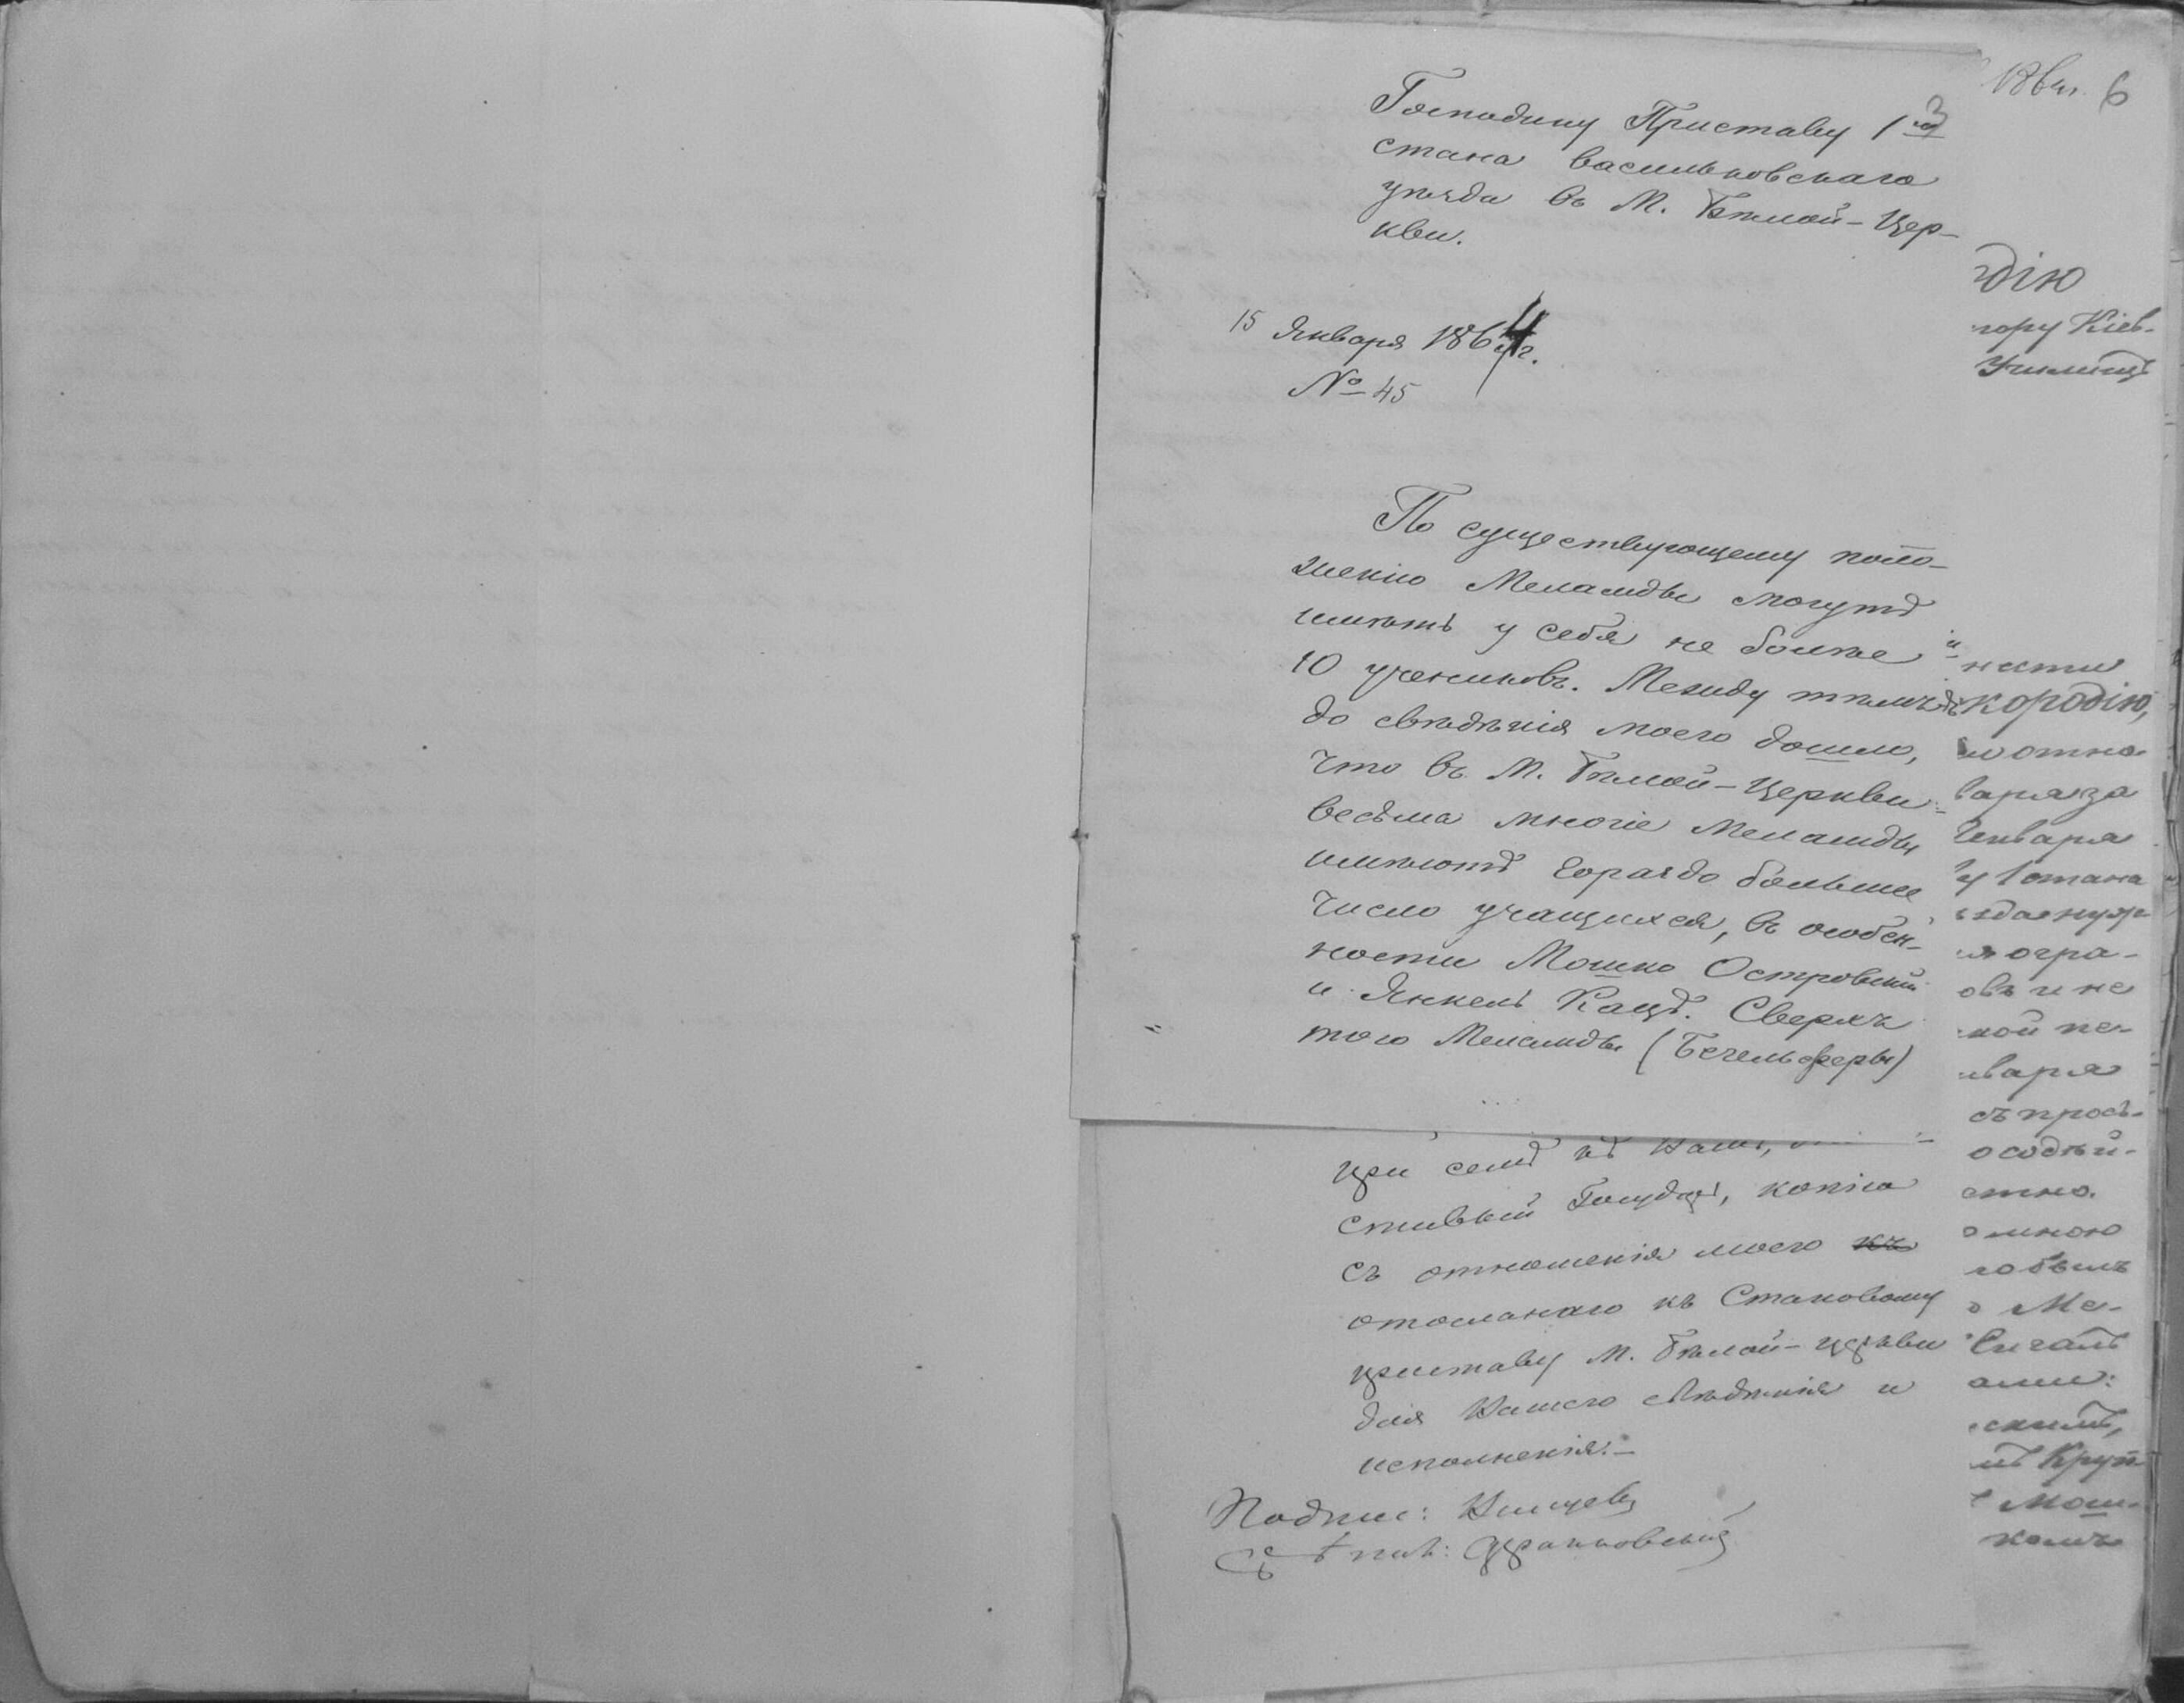 1864г. 6
Господину Приставу 1го
стана Васильковскаго
уѣзда въ М. Бѣлой-Цер-
кви.
15 Января 1864г.
№ 45
По существующему поло-
женію Меламды могутъ
имѣть у себя не болѣе
10 учениковъ. Между тѣмъ
до свѣдѣнія моего дошло,
что въ М. Бѣлой-Церкви
весьма многіе Меламды
имѣютъ гораздо большее
число учащихся, въ особен-
ности Мошко Островскій
и Янкель Кацъ. Сверхъ
того Меламды (Бегельферы)
при семъ къ Вамъ,
стивый Государь, копію
съ отношенія моего къ
отосланаго къ Становому
приставу М. Бѣлой-Церкви
для Вашего свѣдѣнія и
исполненія.-
Подпис:
дію
тору Кіев-
Училищъ
ности
кородію,
отно
варя за
Января
у 1 стана
огра-
овъ и не
ной пе-
нваря
съ прось-
о содѣй-
стно.
о мною
о Ме-
ами:
скимъ,
мъ Круп-
Мош-
комъ